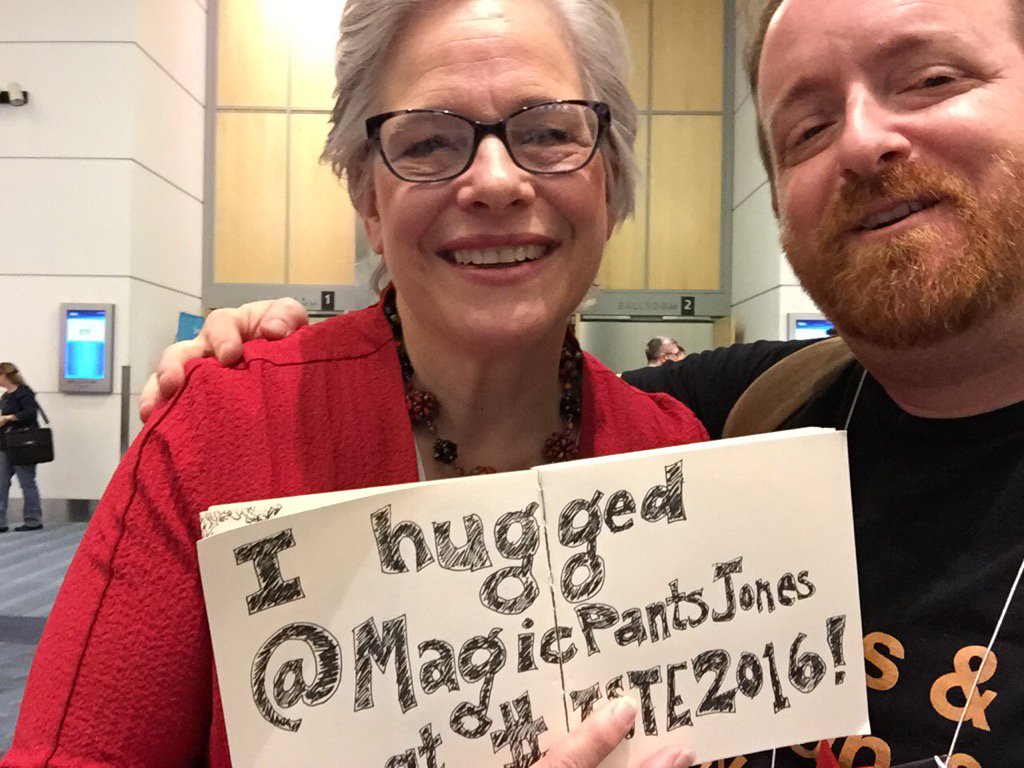 1
BALLROOM 2
I hugged
@MagicPantsJones
at #ISTE2016!
s &